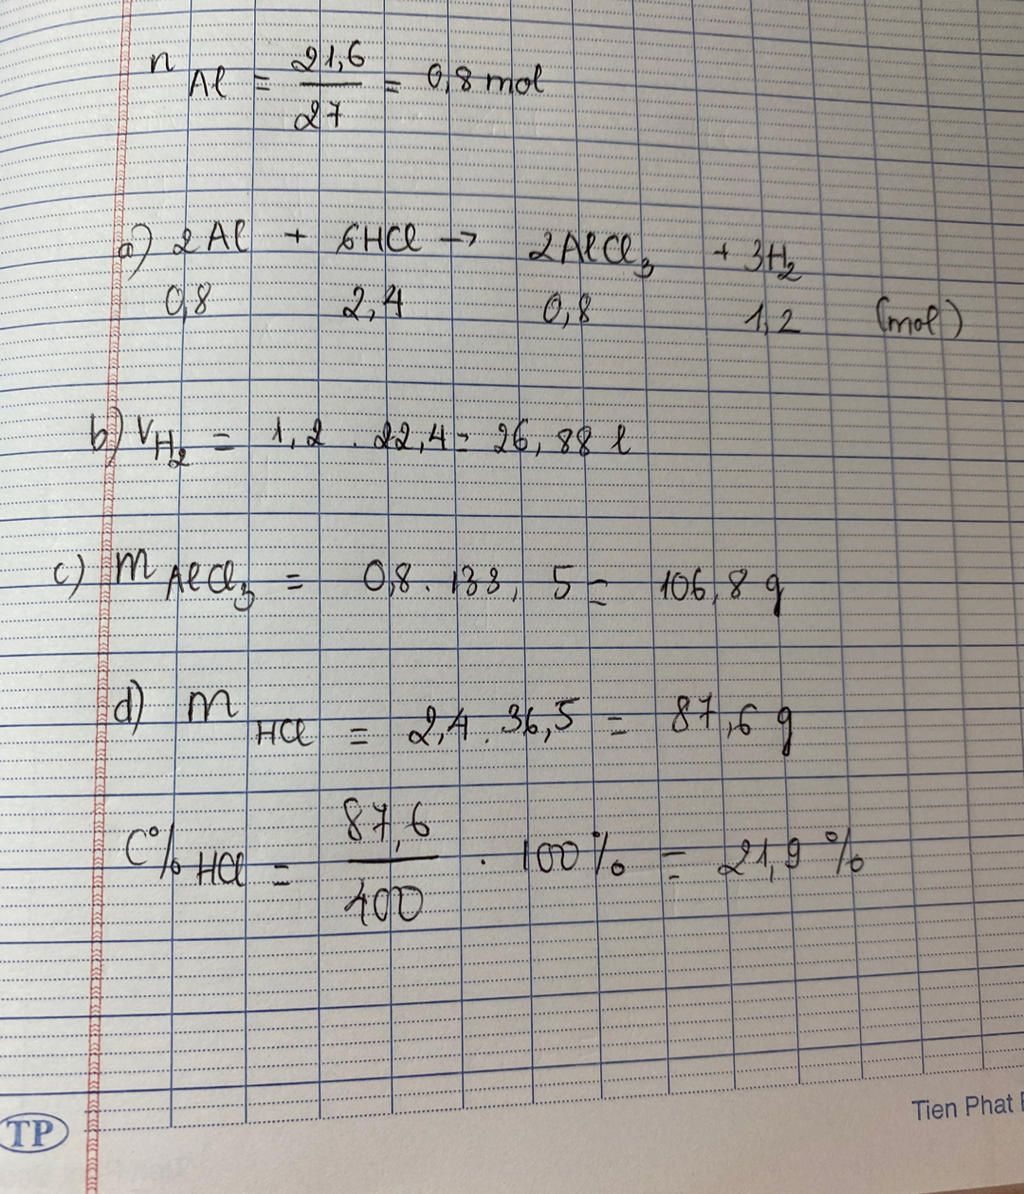 n Al = 21,6 / 27 = 0,8 mol
a) 2Al + 6HCl → 2AlCl3 + 3H2
0,8 2,4 0,8 1,2 (mol)
b) VH2 = 1,2 . 22,4 = 26,88 l
c) m AlCl3 = 0,8 . 133,5 = 106,8 g
d) m HCl = 2,4 . 36,5 = 87,6 g
C% HCl = 87,6 / 400 . 100% = 21,9 %
Tien Phat
TP